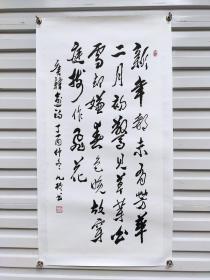 新年都未有芳華
二月初驚見草芽白
雪却嫌春色晚故穿
庭樹作飛花
韓愈詩 丁酉仲冬